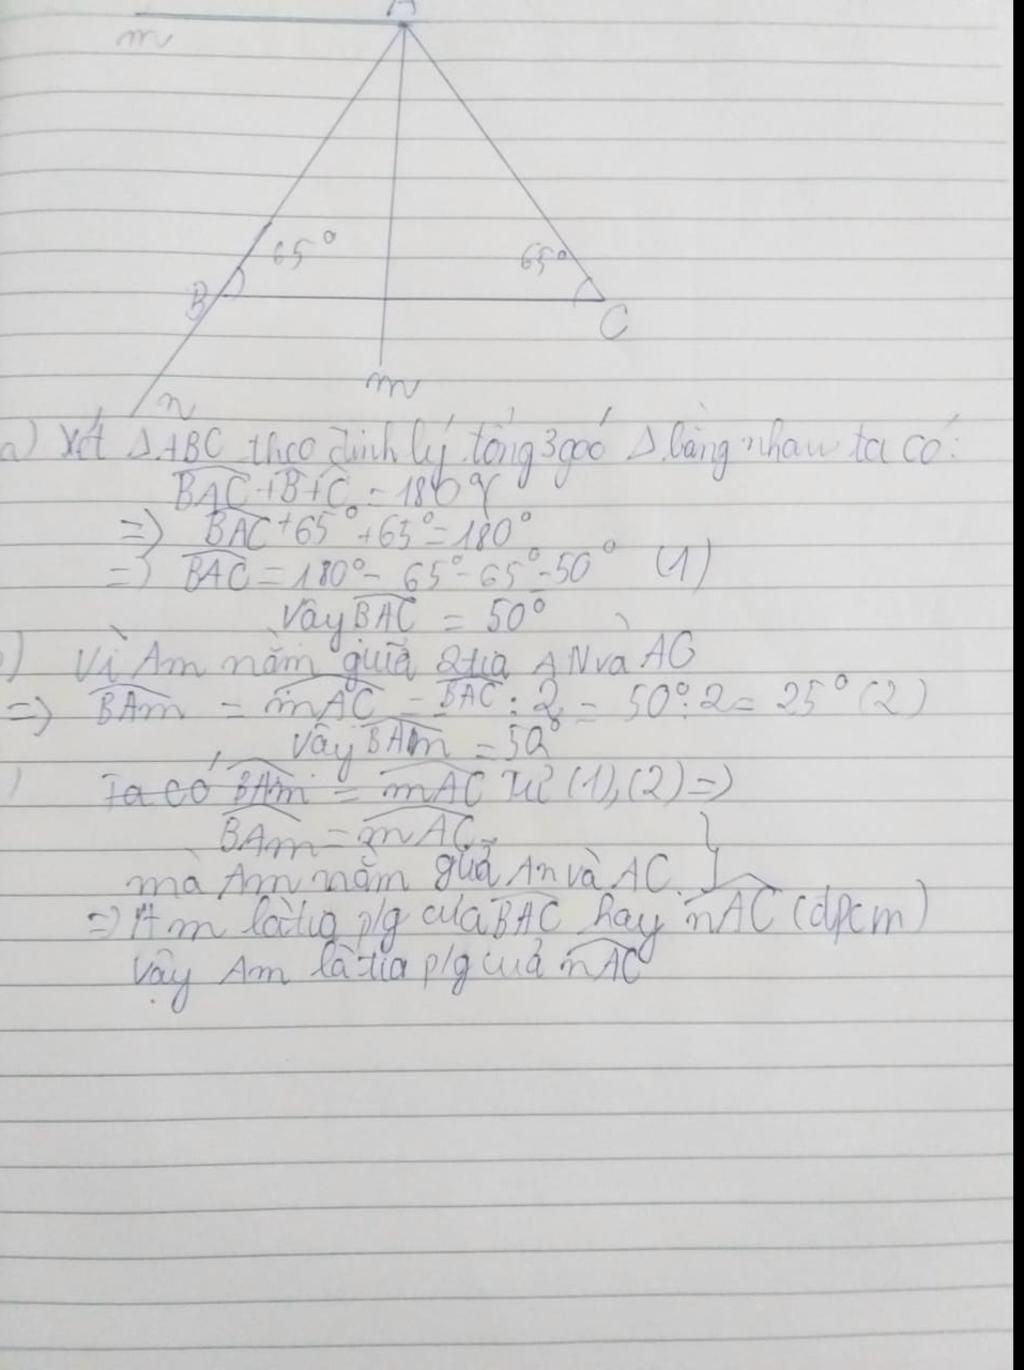 A
m
65°
65°
B
C
m
n
a) Xét ΔABC theo định lý tổng 3 góc Δ bằng nhau ta có:
BAC + B + C = 180°
=) BAC + 65° + 65° = 180°
=) BAC = 180° - 65° - 65° = 50° (1)
Vậy BAC = 50°
) Vì Am nằm giữa 2 tia AN và AC
=) BAm = mAC = BAC : 2 = 50° : 2 = 25° (2)
Vậy BAm = 50°
) Ta có BAm = mAC từ (1), (2) =)
BAm = mAC
mà Am nằm giữa An và AC }
=) Am là tia p/g của BAC hay nAC (đpcm)
Vậy Am là tia p/g của nAC